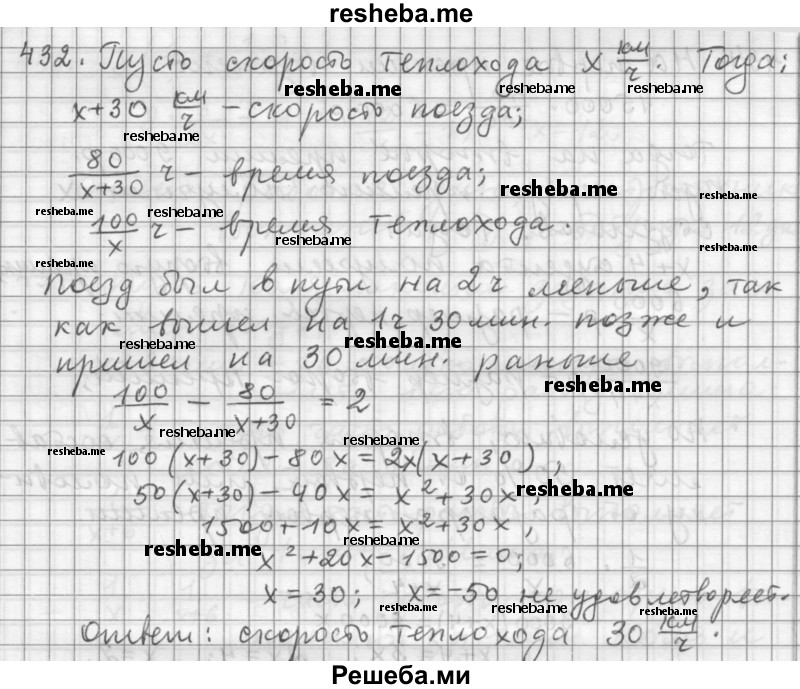 resheba.me
432. Пусть скорость теплохода x км/ч. Тогда:
resheba.me resheba.me resheba.me
x+30 км/ч – скорость поезда;
resheba.me
80/(x+30) ч – время поезда;
resheba.me resheba.me
resheba.me resheba.me
100/x ч – время теплохода.
resheba.me resheba.me
resheba.me
Поезд был в пути на 2ч меньше, так
как вышел на 1ч 30 мин. позже и
resheba.me
пришел на 30 мин. раньше
resheba.me
100/x – 80/(x+30) = 2
resheba.me resheba.me
resheba.me
100(x+30) – 80x = 2x(x+30),
50(x+30) – 40x = x²+30x,
resheba.me
1500+10x = x²+30x,
resheba.me resheba.me
x²+20x–1500=0;
x = 30; x=–50 не удовлетворяет.
resheba.me resheba.me resheba.me
Ответ: скорость теплохода 30 км/ч.
Решеба.ми